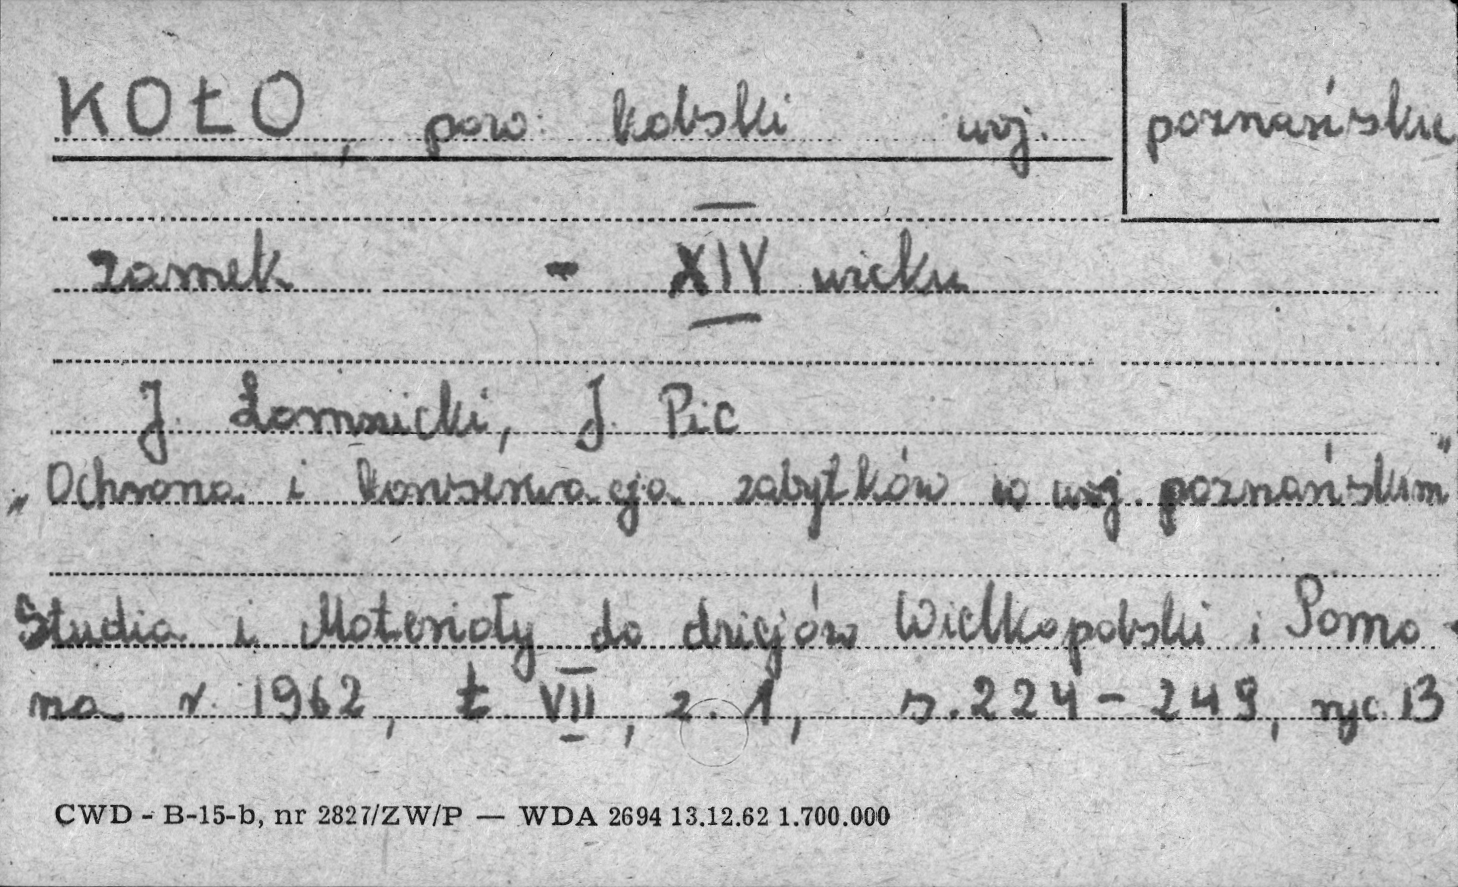 KOŁO, pow. kolski woj. poznańskie
zamek - XIV wieku
J. Łomnicki, J. Pic
„Ochrona i konserwacja zabytków w woj. poznańskim"
Studia i Materiały do dziejów Wielkopolski i Pomo-
na r. 1962, t. VII, z. 1, s. 224 - 249, ryc. 13
CWD - B-15-b, nr 2827/ZW/P — WDA 2694 13.12.62 1.700.000